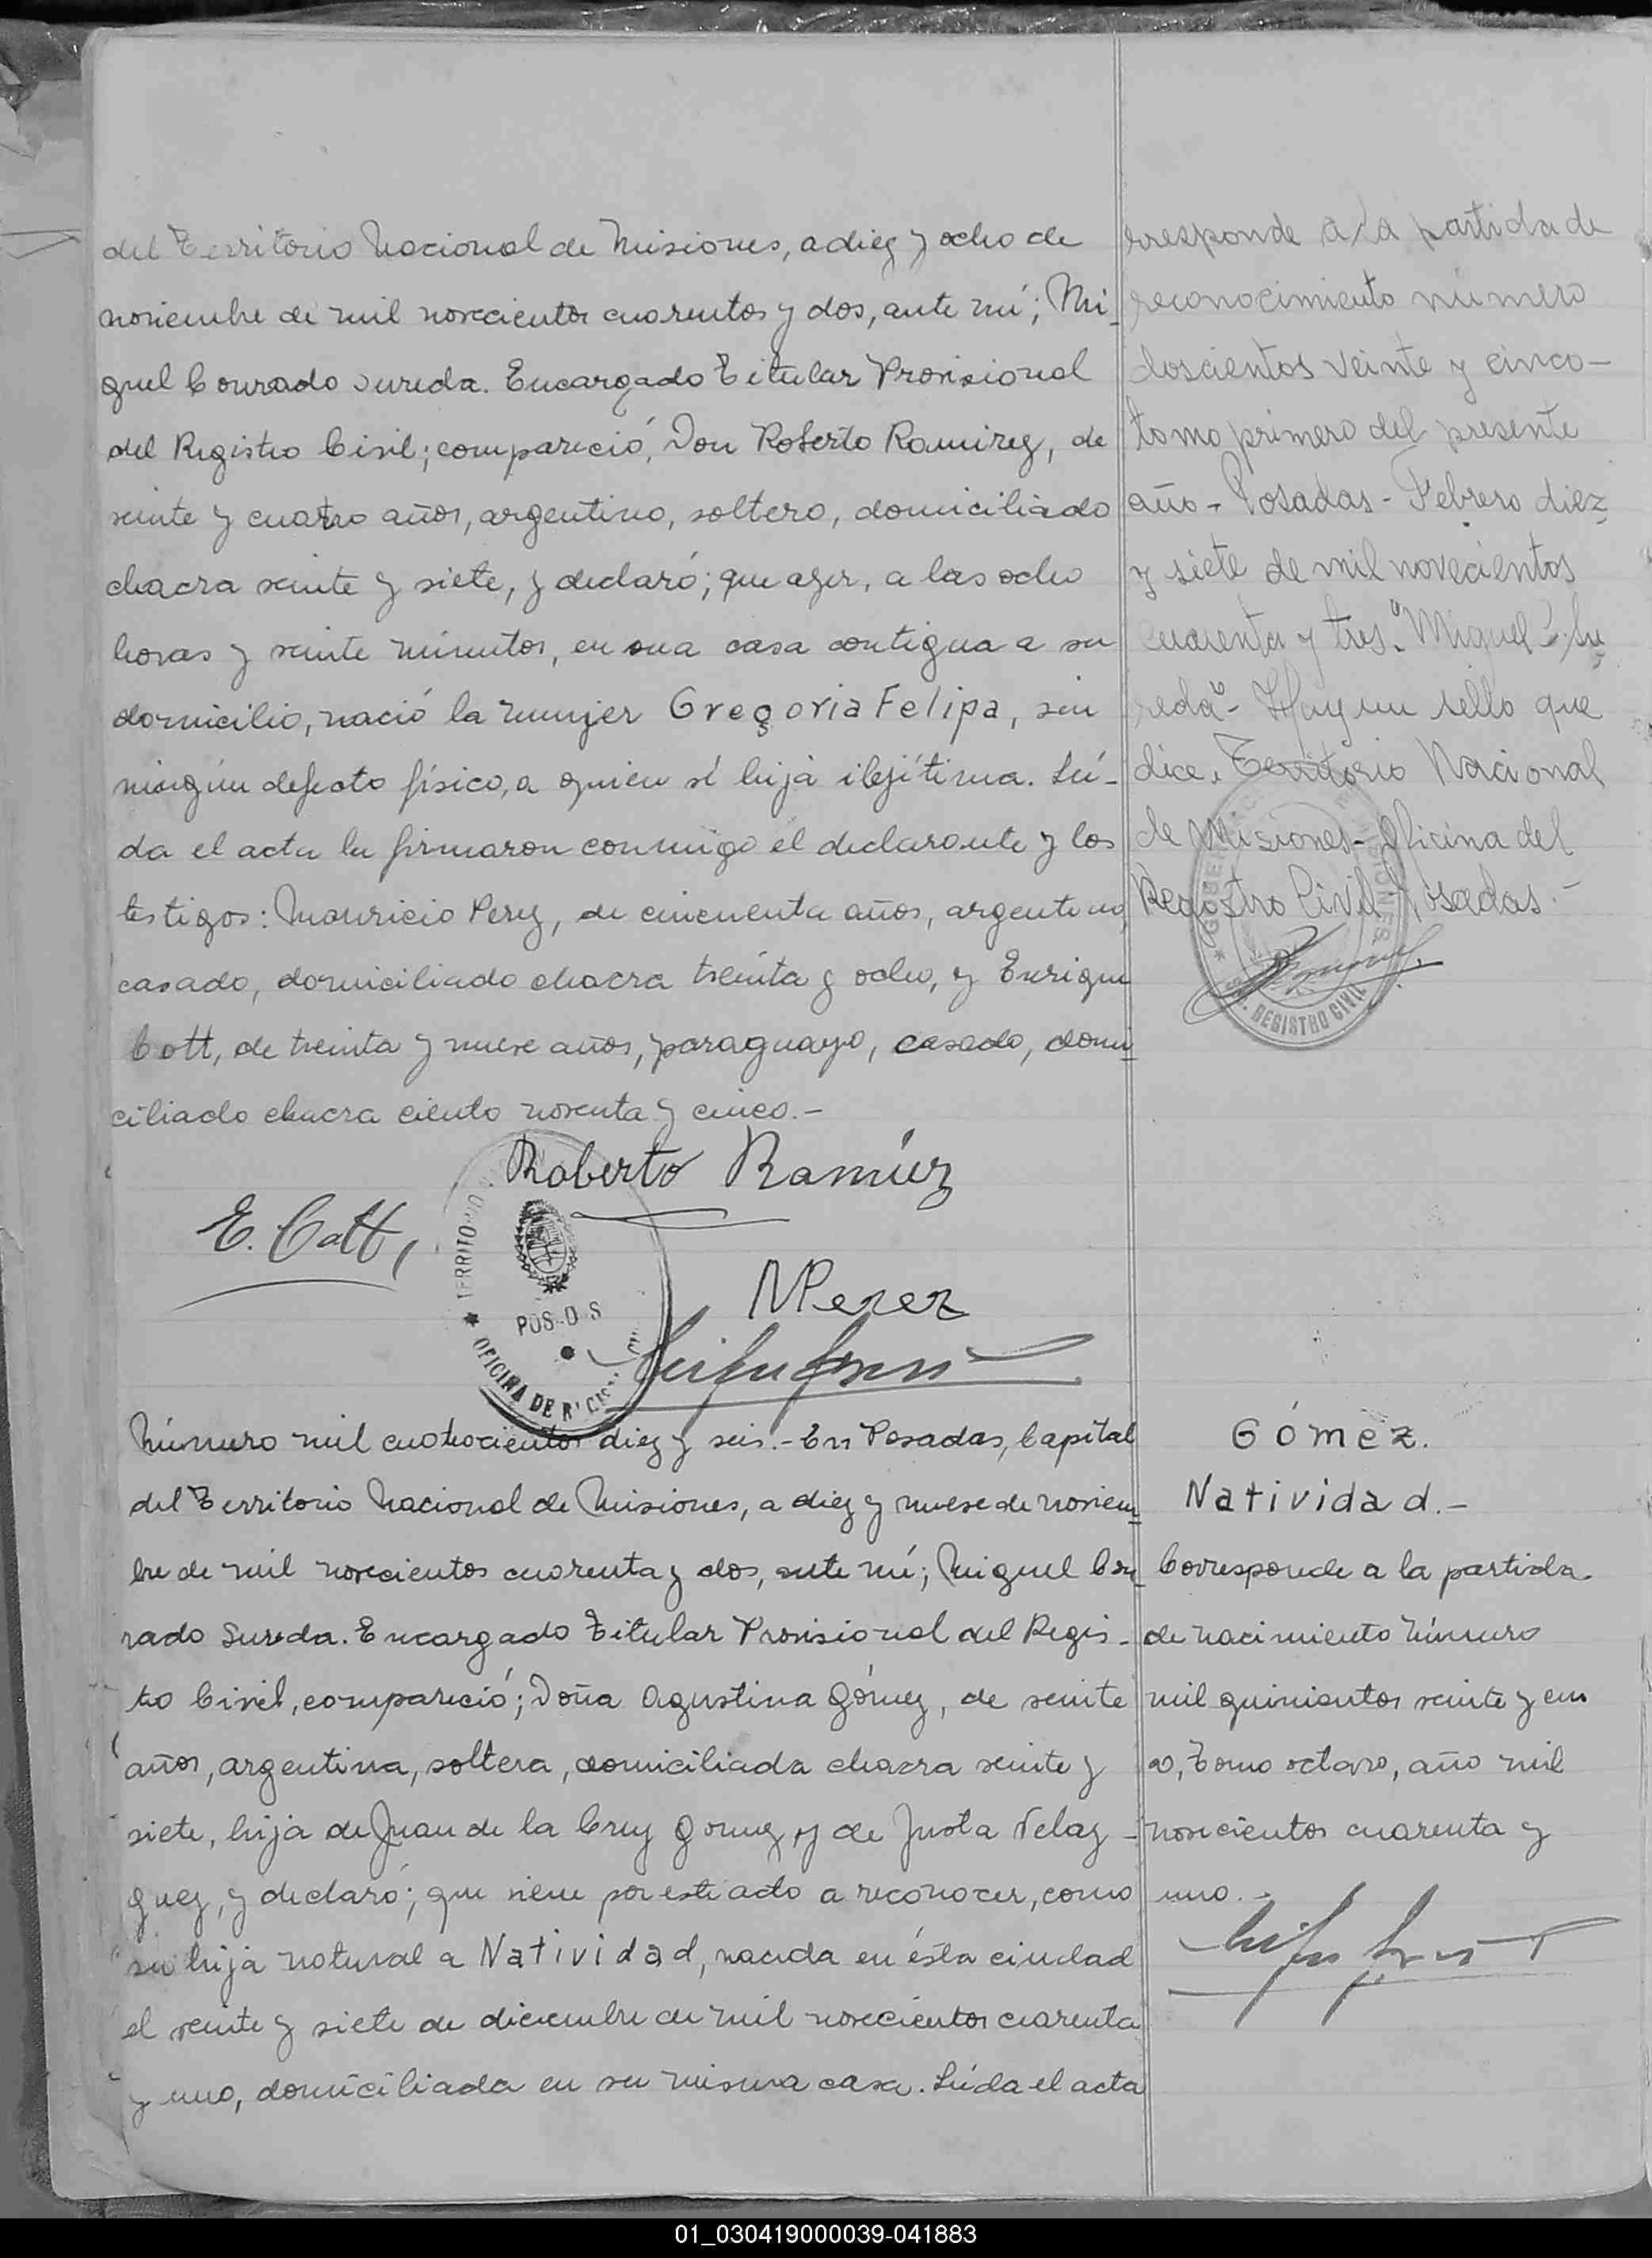 del Territorio Nacional de Misiones, a diez y ocho de
noviembre de mil novecientos cuarentos y dos, ante mí; Mi-
guel Conrado Sureda. Encargado Titular Provisional
del Registro Civil; compareció, Don Roberto Ramirez, de
veinte y cuatro años, argentino, soltero, domiciliado
chacra veinte y siete, y declaró; que ayer, a las ocho
horas y veinte minutos, en una casa contigua a su
domicilio, nació la mujer Gregoria Felipa, sin
ningún defecto físico, a quien vi hija ilejítima. Leí-
da el acta la firmaron conmigo el declarante y los
testigos: Mauricio Perez, de cincuenta años, argentino,
casado, domiciliado chacra treinta y ocho, y Enrique
Cott, de treinta y nueve años, paraguayo, casado, domi-
ciliado chacra ciento noventa y cinco.-
Roberto Ramírez
E. Cott,
MPerez
TERRITO
POS
OFICINA DE
rresponde a la partida de
reconocimiento número
doscientos veinte y cinco-
tomo primero del presente
año - Posadas - Febrero diez
y siete de mil novecientos
cuarenta y tres. "Miguel C. Su-
reda"- Hay un sello que
dice, Territorio Nacional
de Misiones - Oficina del
Registro Civil Posadas.-
REGISTRO CIVIL
Número mil cuatrocientos diez y seis.- En Posadas, Capital
del Territorio Nacional de Misiones, a diez y nueve de noviem-
bre de mil novecientos cuarenta y dos, ante mí; Miguel Con-
rado Sureda. Encargado Titular Provisional del Regis-
tro Civil, compareció; Doña Agustina Gómez, de veinte
años, argentina, soltera, domiciliada chacra veinte y
siete, hija de Juan de la Cruz Gomez, y de Justa Velaz-
quez, y declaró; que viene por este acto a reconocer, como
su hija natural a Natividad, nacida en ésta ciudad
el veinte y siete de diciembre de mil novecientos cuarenta
y uno, domiciliada en su misma casa. Leída el acta
Gómez.
Natividad.-
Corresponde a la partida
de nacimiento número
mil quinientos veinte y cin
co, Tomo octavo, año mil
novecientos cuarenta y
uno.-
01_030419000039-041883